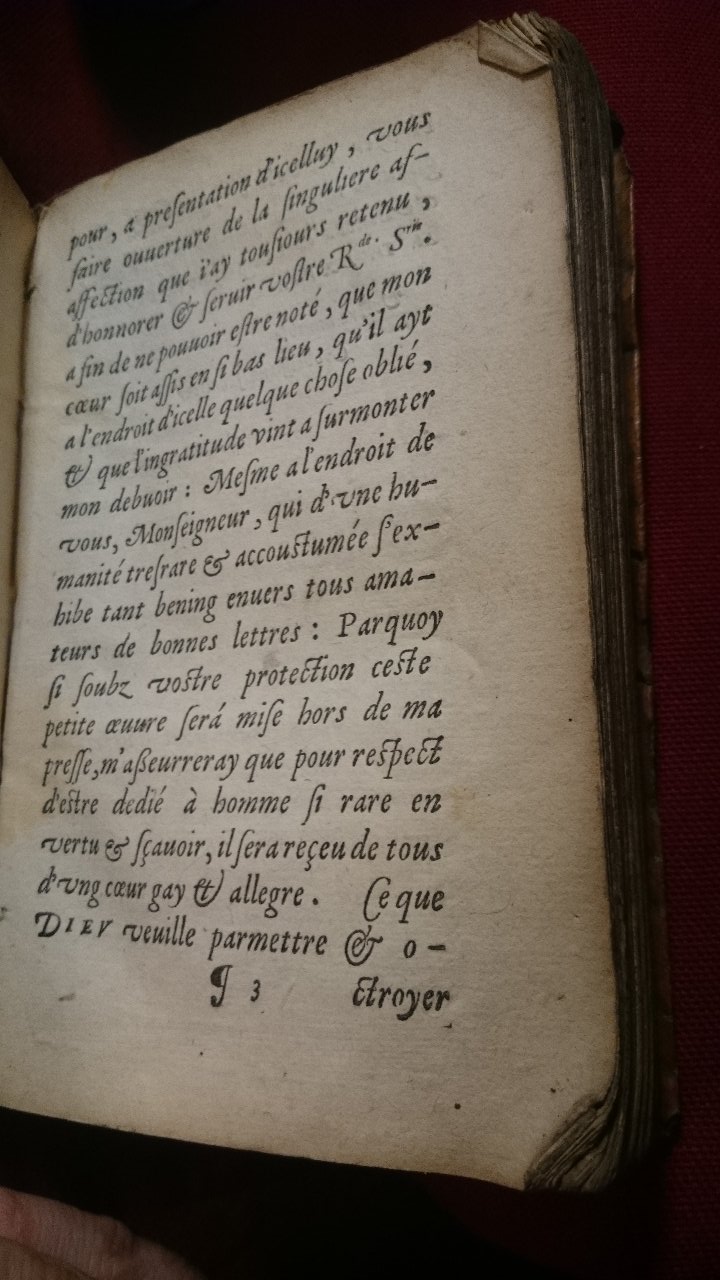 pour, a preſentation d'icelluy, vous
faire ouuerture de la ſinguliere af-
affection que i'ay touſiours retenu,
d'honnorer & ſeruir voſtre R^de. S^rie.
a fin de ne pouuoir eſtre noté, que mon
cœur ſoit aſſis en ſi bas lieu, qu'il ayt
a l'endroit d'icelle quelque choſe oblié,
& que l'ingratitude vint a ſurmonter
mon debuoir : Meſme a l'endroit de
vous, Monſeigneur, qui d'vne hu-
manité treſrare & accouſtumée ſ'ex-
hibe tant bening enuers tous ama-
teurs de bonnes lettres : Parquoy
ſi ſoubz voſtre protection ceſte
petite œuure ſerá miſe hors de ma
preſſe, m'aßeurreray que pour reſpect
d'eſtre dedié à homme ſi rare en
vertu & ſçauoir, il ſera reçeu de tous
d'vng cœur gay & allegre. Ce que
DIEV veuille parmettre & o-
¶ 3 ctroyer